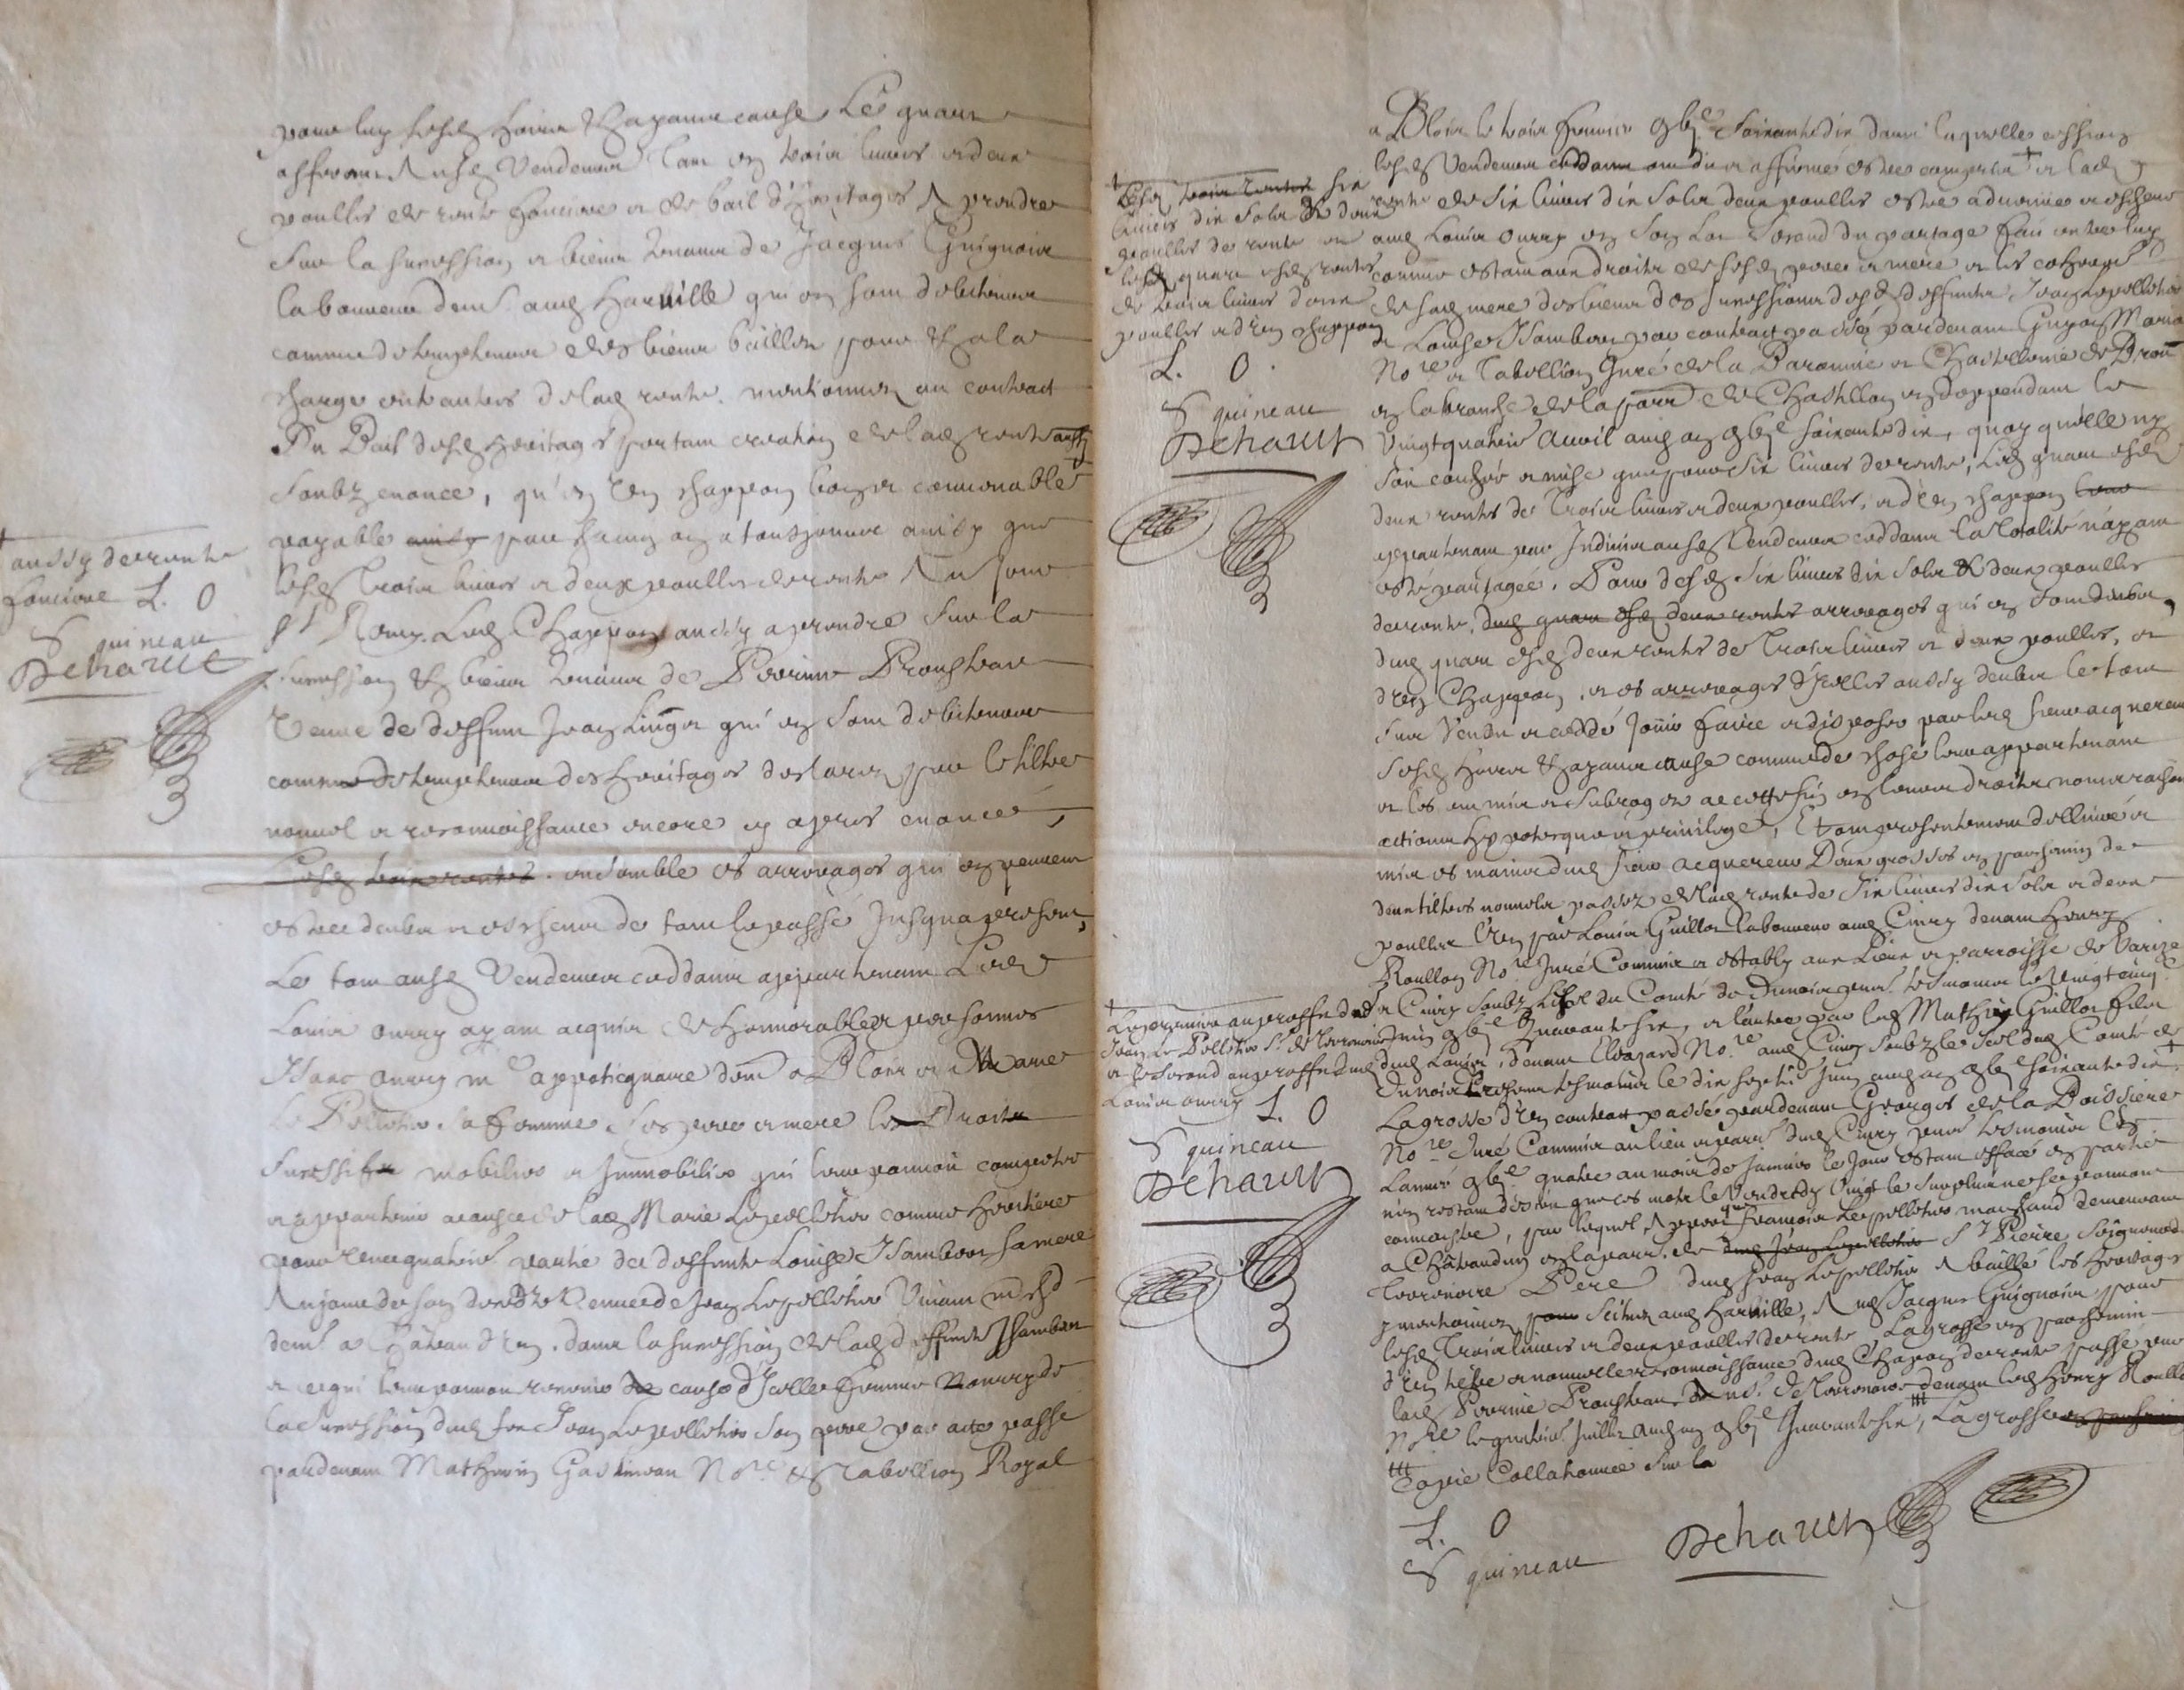 pour luy sesd hoirs & ayans cause Le quart
afferant Ausd Vendeurs tant en trois livres et deux
poulles de rente fonciere et de bail d'heritages A prendre
sur la succession et biens tenans de Jacques Guignois
laboureur dem.t aud Harville qui en sont detempteurs
comme detempteurs des biens baillez pour & a la
charge entr'autres de lad rente. mentionnez au contract
Du Bail desd heritages portant creation de lad rente aussy
soubz enoncé, qu'en un chappon bon et convenable
payable par chacun an a tousjours ainsy que
lesd trois livres et deux poulles de rente Au jour
S.t Remy. Led Chappon aussy a prendre sur la
succession & biens tenans de Perrine Prousteau
Veuve de deffunt Jean qui en sont detempteurs
comme detempteurs des heritages declarez par le tiltre
nouvel et reconnoissance encore cy apres enoncé,
ensemble les arrerages qui en peuvent
estre deubz et escheuz de tout le passé Jusqu'a present,
Le tout ausd Vendeurs ceddans appartenant Led
Louis ourry ayant acquis de honnorables personnes
Isaac ourry m.e appoticquaire dem.t a Blois et Marie
Le Pelletier sa femme ses pere et mere les Droits
successifz mobiliers et Immobiliers qui leur pouvoient competer
et appartenir a cause de lad Marie Lepelletier comme heritiere
pour une quatrie partie de deffunte Louise Isambert sa mere
Au jour de son deceds Veuve de Jean Lepelletier Vivant m.d
dem.t a Châteaudun. dans la succession de lad deffunte Isambert
et ce qui leur pouvoit revenir a cause d'Icelle
la succession dud feu Jean Lepelletier son pere par acte passé
pardevant Mathurin Gastineau No.re & Tabellion Royal
aussy de rente
fonciere L. O
S quineau
Dehault
a Blois le trois fevrier gbj.c soixante dix dans laquelle cession
lesd Vendeurs ceddans ont dit et affirmé estre comprise et lad
rente de six livres dix solz deux poulles estre advenue et escheue
aud Louis ourry en son Lot second du partage fait entre luy
comme estant aux droits de sesd pere et mere et les coheritiers
de sad mere des biens des successions desd deffuntz Jean Lepelletier
& Louise Isambert par contract passé pardevant Marie
No.re et Tabellion Juré de la Baronnie et Chastellenie de Brou
en la branche de la parr de Chastillon en dependant le
Vingtquatrie Avril aud an gbj.c soixante dix, quoy qu'elle n'y
soit couchée et mise que pour six livres de rente, Led quart esd
deux rentes de Trois livres et deux poulles, et d'un chappon
appartenant par Indivis ausd Vendeurs ceddans la totalité n'ayant
esté partagée. Pour desd six livres dix solz & deux poulles
de rente, dud quart esd deux rentes arrerages qui en sont deubz,
dud quart esd deux rentes de Trois livres et deux poulles, et
d'un Chappon, et es arrerages d'Icelles aussy deubz le tout
sus Vendu et ceddé Jouir faire et disposer par led sieur acquereur
sesd hoirs & ayans cause comme de chose leur appartenant
et les ont mis et subrogez a cette fin en leurs droits noms raisons
actions hypoteques et privileges, Et ont presentement dellivré et
mis es mains dud sieur acquereur Deux grosses en parchemin de
deux tiltres nouvelz passez de lad rente de six livres dix solz et deux
poulles l'un par Louis Guillot laboureur aud Civry devant Henry
Roullon No.re Juré Commis et estably aux Lieux et parroisse de Varize
et Civry soubz le scel du Comté de Dunois tesmoins le Vingtcinq
Juin gbj.c Quarante six, et l'autre par led Mathieu Guillot filz
dud Louis, devant Eleazard No.re aud Civry soubz le scel dud Comté de
Dunois Presens tesmoins le dix sept Juin aud an gbj.c soixante dix
La grosse d'un contract passé pardevant Georges de la Boissiere
No.re Juré Commis au lieu et parr dud Civry tesmoins
L'année gbj.c quatre au mois de Janvier le jour estant effacé en partie
n'en restant d'ecrit que ces motz le Vendredy Vingt le surplus ne se pouvant
connoistre, par lequel Appert que francois Lepelletier marchand demeurant
a Châteaudun en la parr. de S.t Pierre
Pere dud Jean Lepelletier A baillé les heritages
y mentionnez scituez aud Harville, Aud Jacques Guignois, pour
lesd Trois livres et deux poulles de rente, La grosse en parchemin
d'un tiltre et nouvelle reconnoissance dud Chappon de rente passé par
lad Perrine Prousteau devant led Henry Roullon
No.re le quatrie Juillet aud an gbj.c Quarante six, La grosse en parchemin
Copie Collationnée sur la
Lesd trois rentes six
livres dix solz & deux
poulles de rente et
led quart esd rentes
de trois livres deux
poulles et d'un chappon
L. O
S quineau
Dehault
Le premier au proffit dud
Jean Le Pelletier
et le second au proffit dud
Louis ourry L. O
S quineau
Dehault
L. O
S quineau Dehault